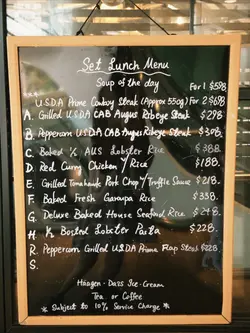 Set Lunch Menu
Soup of the day
For 1 $398
USDA Prime Cowboy Steak (Approx 550g) For 2 $698
A. Grilled USDA CAB Angus Ribeye Steak $298
B. Peppercorn USDA CAB Angus Ribeye Steak $308.
C. Baked ½ AUS Lobster Rice $388.
D. Red Curry Chicken / Rice $188.
E. Grilled Tomahawk Pork Chop / Truffle Sauce $218.
F. Baked Fresh Garoupa Rice $338.
G. Deluxe Baked House Seafood Rice $248.
H. ½ Boston Lobster Pasta $228.
R. Peppercorn Grilled USDA Prime Flap Steak $228.
S.
Häagen-Dazs Ice-Cream
Tea or Coffee
* Subject to 10% Service Charge *